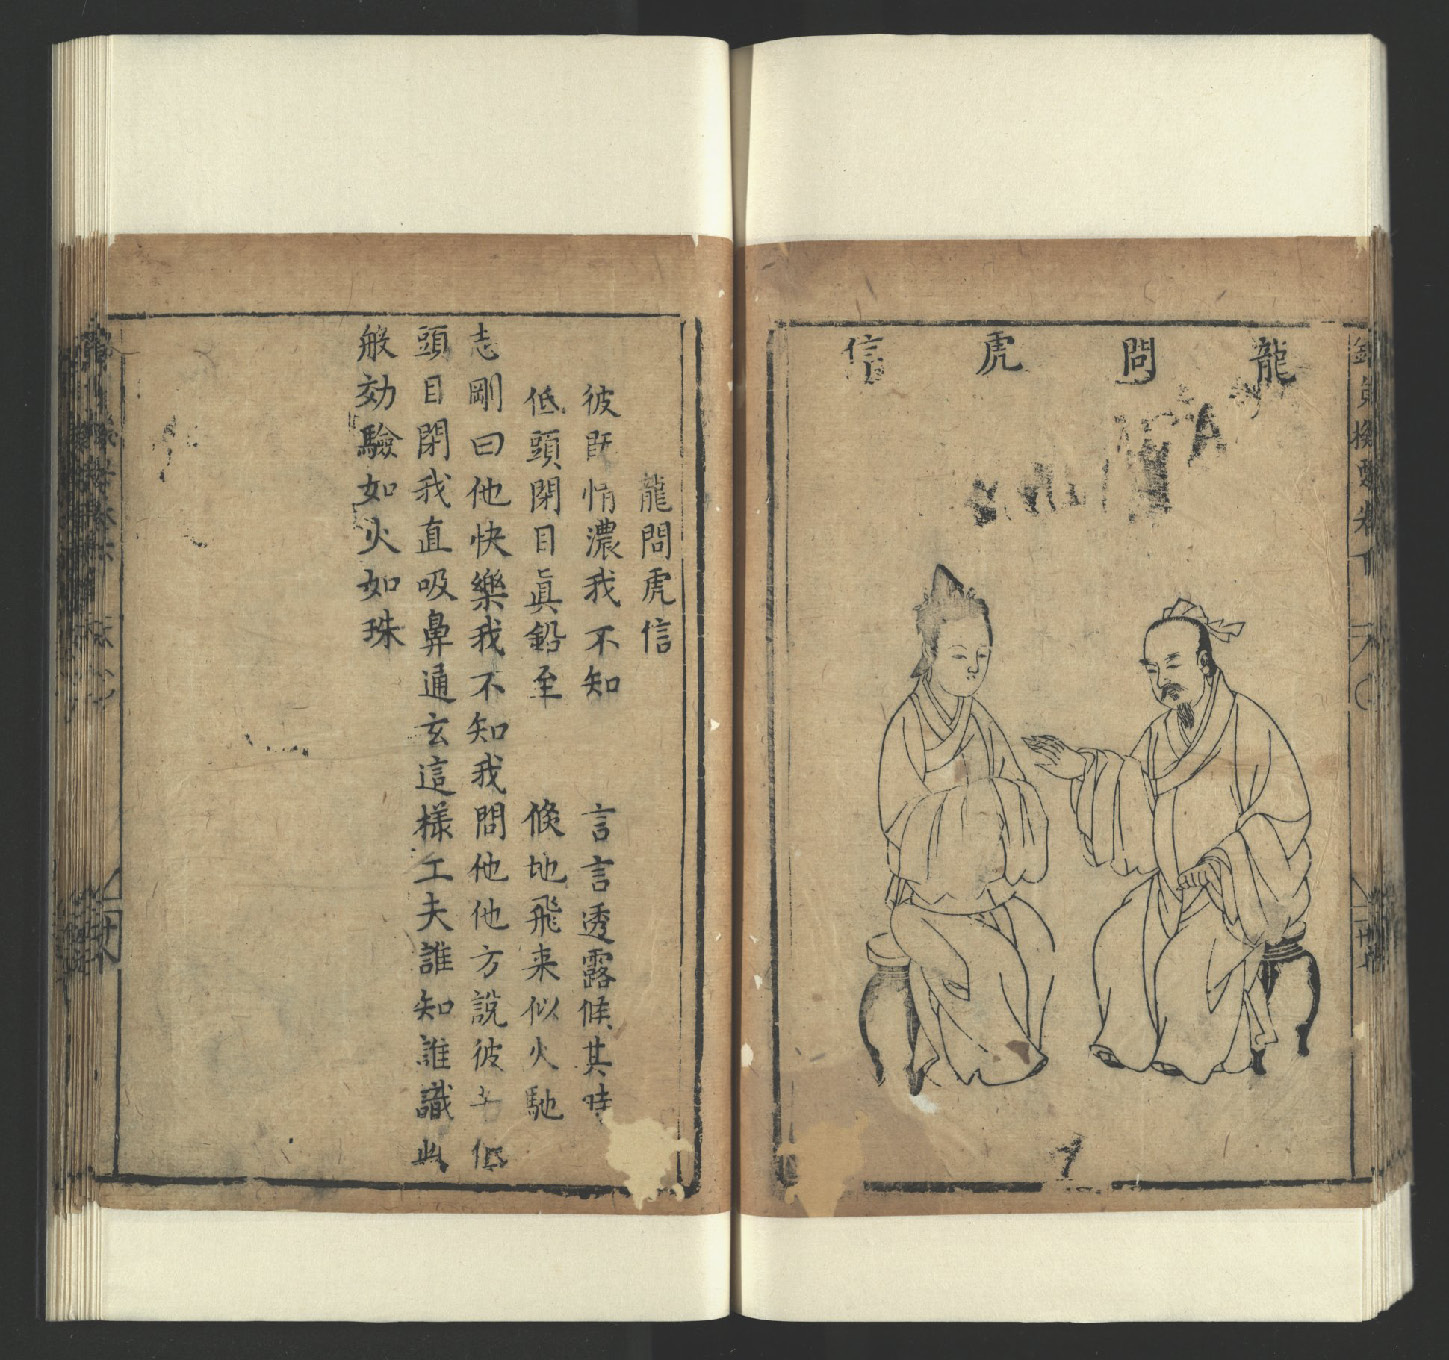 龍問虎信
龍問虎信
彼既情濃我不知　言言透露候其時
低頭閉目眞鉛至　倐地飛来似火馳
志剛曰他快樂我不知我問他他方說彼若低
頭目閉我直吸鼻通玄這樣工夫誰知誰識此
般効驗如火如珠